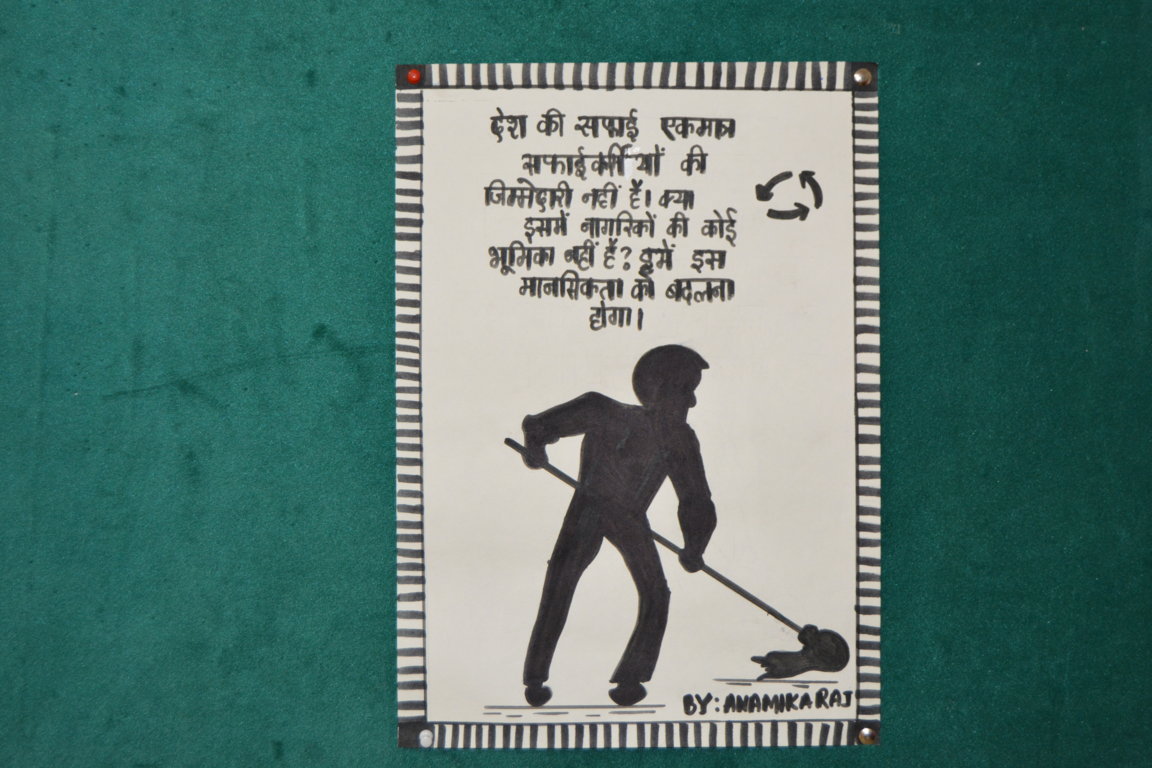 देश की सफाई एकमात्र
सफाईकर्मीयों की
जिम्मेदारी नहीं है। क्या
इसमें नागरिकों की कोई
भूमिका नहीं है? हमें इस
मानसिकता को बदलना
होगा।
BY: ANAMIKA RAJ